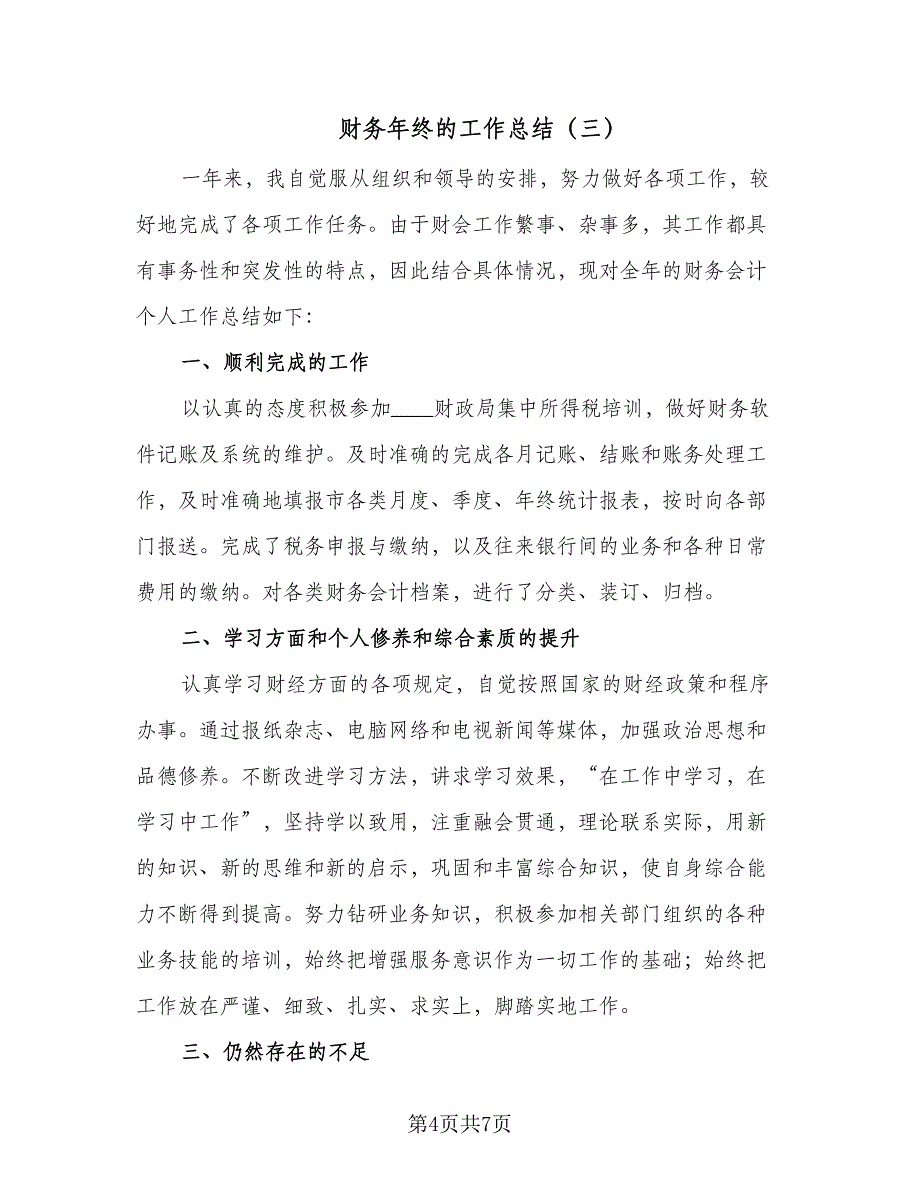 财务年终的工作总结（三）
一年来，我自觉服从组织和领导的安排，努力做好各项工作，较
好地完成了各项工作任务。由于财会工作繁事、杂事多，其工作都具
有事务性和突发性的特点，因此结合具体情况，现对全年的财务会计
个人工作总结如下：
一、顺利完成的工作
以认真的态度积极参加____财政局集中所得税培训，做好财务软
件记账及系统的维护。及时准确的完成各月记账、结账和账务处理工
作，及时准确地填报市各类月度、季度、年终统计报表，按时向各部
门报送。完成了税务申报与缴纳，以及往来银行间的业务和各种日常
费用的缴纳。对各类财务会计档案，进行了分类、装订、归档。
二、学习方面和个人修养和综合素质的提升
认真学习财经方面的各项规定，自觉按照国家的财经政策和程序
办事。通过报纸杂志、电脑网络和电视新闻等媒体，加强政治思想和
品德修养。不断改进学习方法，讲求学习效果，“在工作中学习，在
学习中工作”，坚持学以致用，注重融会贯通，理论联系实际，用新
的知识、新的思维和新的启示，巩固和丰富综合知识，使自身综合能
力不断得到提高。努力钻研业务知识，积极参加相关部门组织的各种
业务技能的培训，始终把增强服务意识作为一切工作的基础；始终把
工作放在严谨、细致、扎实、求实上，脚踏实地工作。
三、仍然存在的不足
第4页共7页